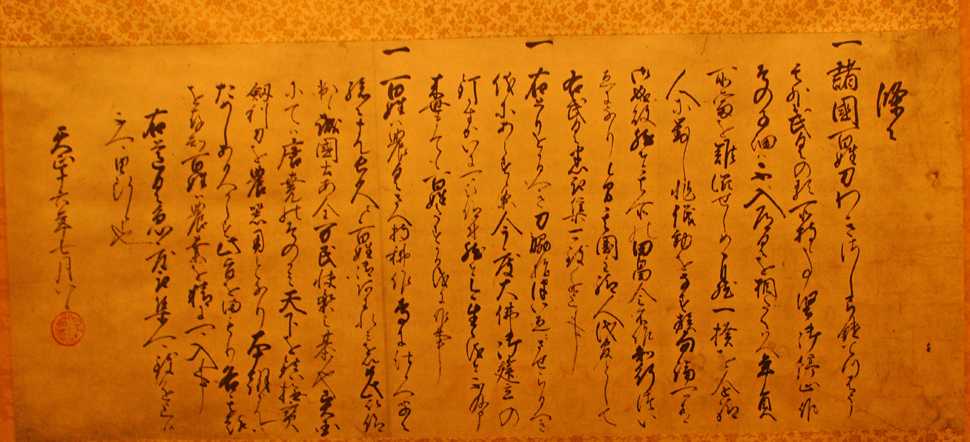 條々
一諸國百姓刀わきさし弓鑓てつはう
其外武具の類所持候事堅御停止候
その子細ハ不入道具を相たくハへ年貢
所當を難澁せしめ自然一揆を企給
人ニ對し非儀動をなす族勿論可有
御成敗然者其所の田畠令不作知行ついへ
ニなり候間其國主給人代官として
右武具悉取集可致進上事
一右取をかるへき刀脇指ついえニさせらるへき
儀にあらす候今度大佛御建立の
釘かすかひニ可被仰付然者今生之儀ハ不及申
来世まても百姓たすかる儀ニ候事
一百姓ハ農具さへ持耕作専ニ仕候へハ子々
孫々まて長久ニ候百姓御あはれミを以如此被
仰出候誠國土安全万民快楽之基也異國
にてハ唐堯のそのかミ天下を鎮撫
劔利刀を農器ニもちいると也本朝
ためしあるへからす此旨を守り各其趣
を存知百姓ハ農桑を精ニ可入事
右道具急度取集可致進上
不可油断也
天正十六年七月